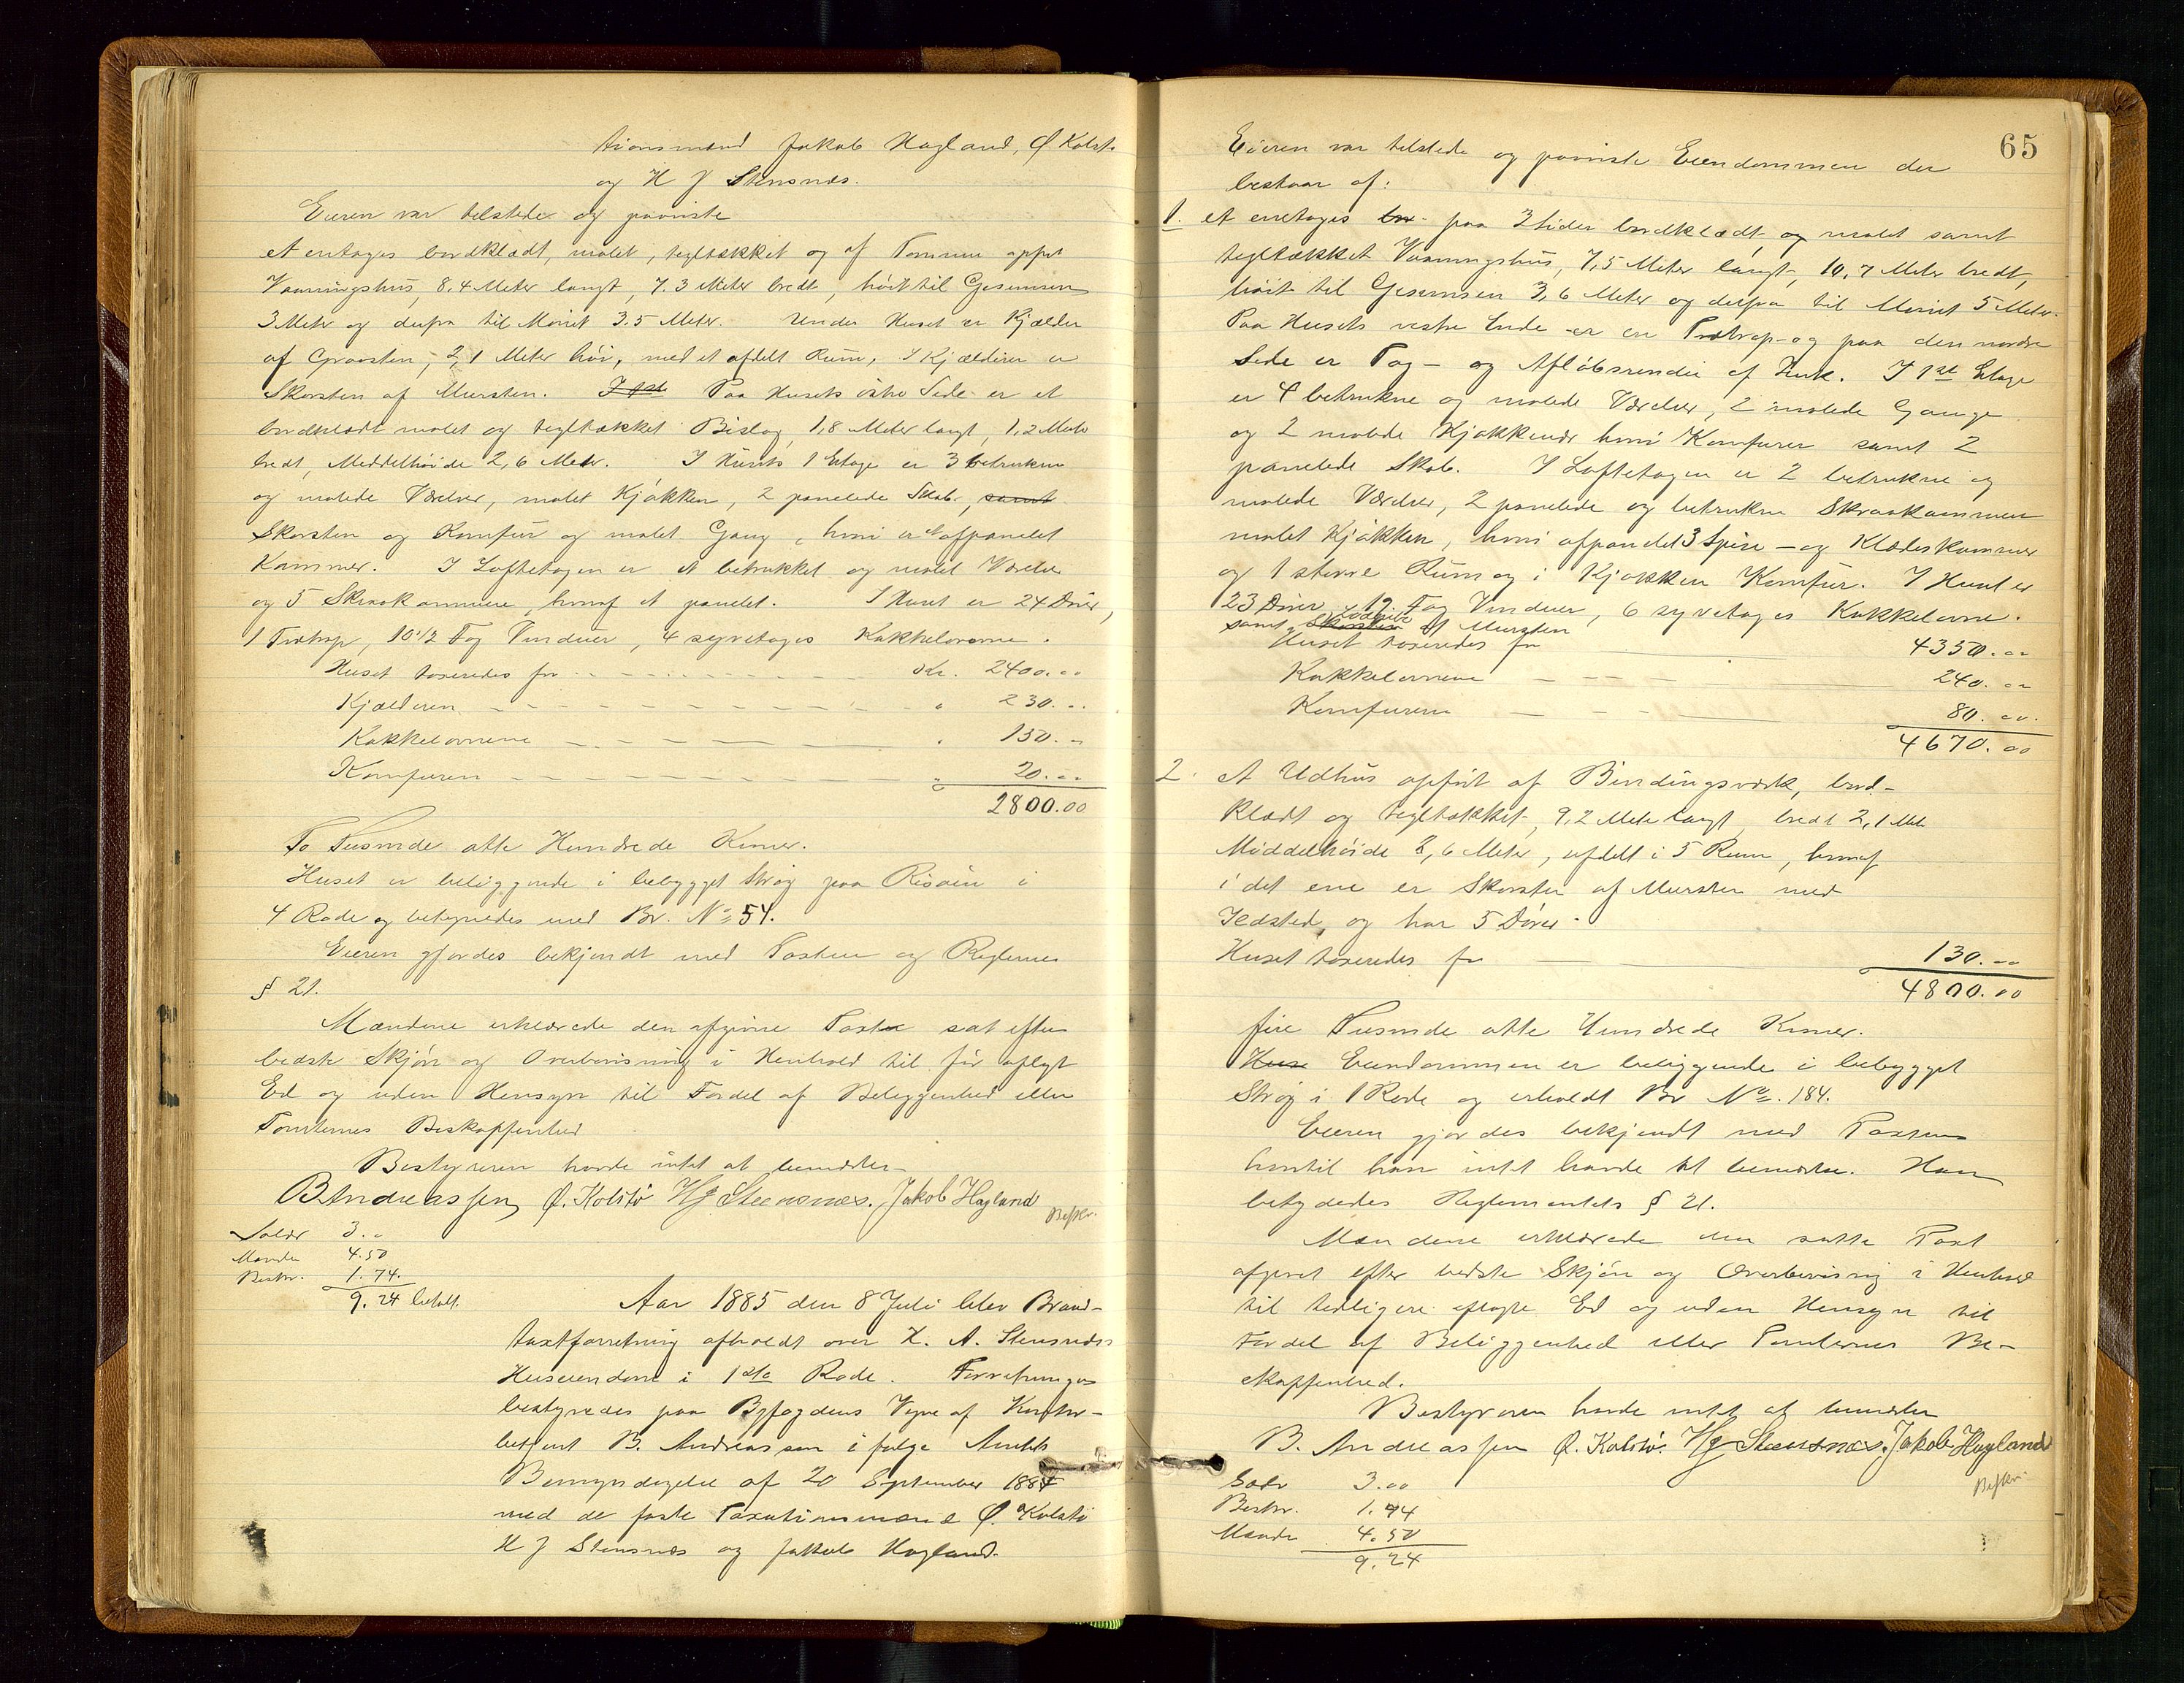 tionsmænd Jakob Hagland, Ø Kolstø
og H J Stensnæs.
Eieren var tilstede og paaviste
et entages bordklædt, malet, tegltækket og af Tømmer opført
Vaaningshus, 8,4 Meter langt, 7.3 Meter bredt, høit til Gesemsen
3 Meter og derfra til Mønet 3.5 Meter. Under Huset er Kjælder
af Graasten, 2,1 Meter høi, med et afdelt Rum. I Kjælderen er
Skorsten af Mursten. I 1st Paa Husets østre Side er et
bordklædt malet og tegltækket Bislag, 1,8 Meter langt, 1,2 Meter
bredt, Meddelhøide 2,6 Meter. I Husets 1 Etage er 3 betrukne
og malede Værelser, malet Kjøkken, 2 panelede Skab, samt
Skorsten og Komfur og malet Gang, hvori er afpanelet
Kammer. I Loftetagen er et betrukket og malet Værelse
og 5 Skraakammere, hvoraf et panelet. I Huset er 24 Døre,
1 Trætrap, 10 1/2 Fag Vinduer, 4 syvetages Kakkelovne.
Huset taxeredes for Kr. 2400.00
Kjælderen " 230.00
Kakkelovnene " 150.00
Komfuren " 20.00
2800.00
To Tusinde otte Hundrede Kroner.
Huset er beliggende i bebygget Strøg paa Risøen i
4 Rode og betegnedes med Br. No 54.
Eieren gjordes bekjendt med Taxten og Reglernes
§ 21.
Mændene erklærede den afgivne Taxt sat efter
bedste Skjøn og Overbevisning i Henhold til før aflagt
Ed og uden Hensyn til Fordel af Beliggenhed eller
Tomternes Beskaffenhed
Bestyreren havde intet at bemærke.
B Andreassen Ø. Kolstø HJ Steensnæs. Jakob Hagland
Beskr.
Salær 3.00
Mænde 4.50
Beskr. 1.74.
9.24 betalt.
Aar 1885 den 8 Juli blev Brand-
taxtforretning afholdt over H. A. Stensnæs
Huseiendom i 1ste Rode. Forretningen
bestyredes paa Byfogdens Vegne af Kontor-
betjent B. Andreassen ifølge Amtets
Bemyndigelse af 20 September 1884
med de faste Taxationsmænd Ø. Kolstø
H J Stensnæs og Jakob Hagland.
65
Eieren var tilstede og paaviste Eiendommen der
bestaar af:
1. et enetages paa 3 Sider bordklædt og malet samt
tegltækket Vaaningshus, 7,5 Meter langt, 10,7 Meter bredt,
høit til Gesemsen 3,6 Meter og derfra til Mønet 5 Meter.
Paa Husets vestre Ende er en Trætrap og paa den nordre
Side er Tag- og Afløbsrender af Zink. I 1ste Etage
er 4 betrukne og malede Værelser, 2 malede Gange
og 2 malede Kjøkkener hvori Komfurer samt 2
panelede Skab. I Loftetagen er 2 betrukne og
malede Værelser, 2 panelede og betrukne Skraakammere
malet Kjøkken, hvori afpanelet 3 Spise- og Klædeskammer
og 1 større Rum og i Kjøkken Komfur. I Huset er
23 Døre, 19 Fag Vinduer, 6 syvetages Kakkelovne.
samt Skorsten Ildpibe af Mursten
Huset taxeredes for 4350.00
Kakkelovnene 240.00
Komfuren 80.00.
4670.00
2. et Udhus opført af Bindingsværk, bord-
klædt og tegltækket, 9,2 Meter langt, bredt 2,1 Meter
Middelhøide 2,6 Meter, afdelt i 5 Rum, hvoraf
i det ene er Skorsten af Mursten med
Ildsted, og har 5 Døre.
Huset taxeredes for 130.00
4800.00
fire Tusinde otte Hundrede Kroner.
Huse Eiendommen er beliggende i bebygget
Strøg i 1 Rode og erholdt Br No. 184.
Eieren gjordes bekjendt med Taxten
hvortil han intet havde at bemærke. Han
betydedes Reglementets § 21.
Mændene erklærede den satte Taxt
afgivet efter bedste Skjøn og Overbevisning i Henhold
til tidligere aflagte Ed og uden Hensyn til
Fordel af Beliggenhed eller Tomternes Be-
skaffenhed.
Bestyreren havde intet at bemærke
B. Andreassen Ø. Kolstø. HJ Steensnæs. Jakob Hagland
Beskr.
Salær 3.00
Beskr. 1.74
Mænde 4.50
9.24